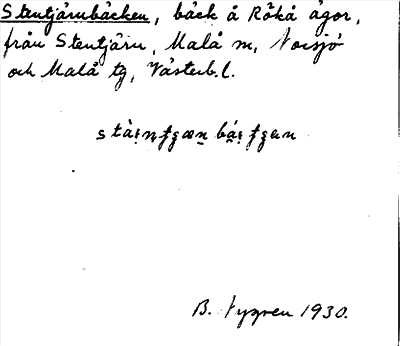 Stentjärnbäcken, bäck å Rökå ägor,
från Stentjärn, Malå sn, Norsjö
och Malå tg, Västerb. l.
B. Nygren 1930.